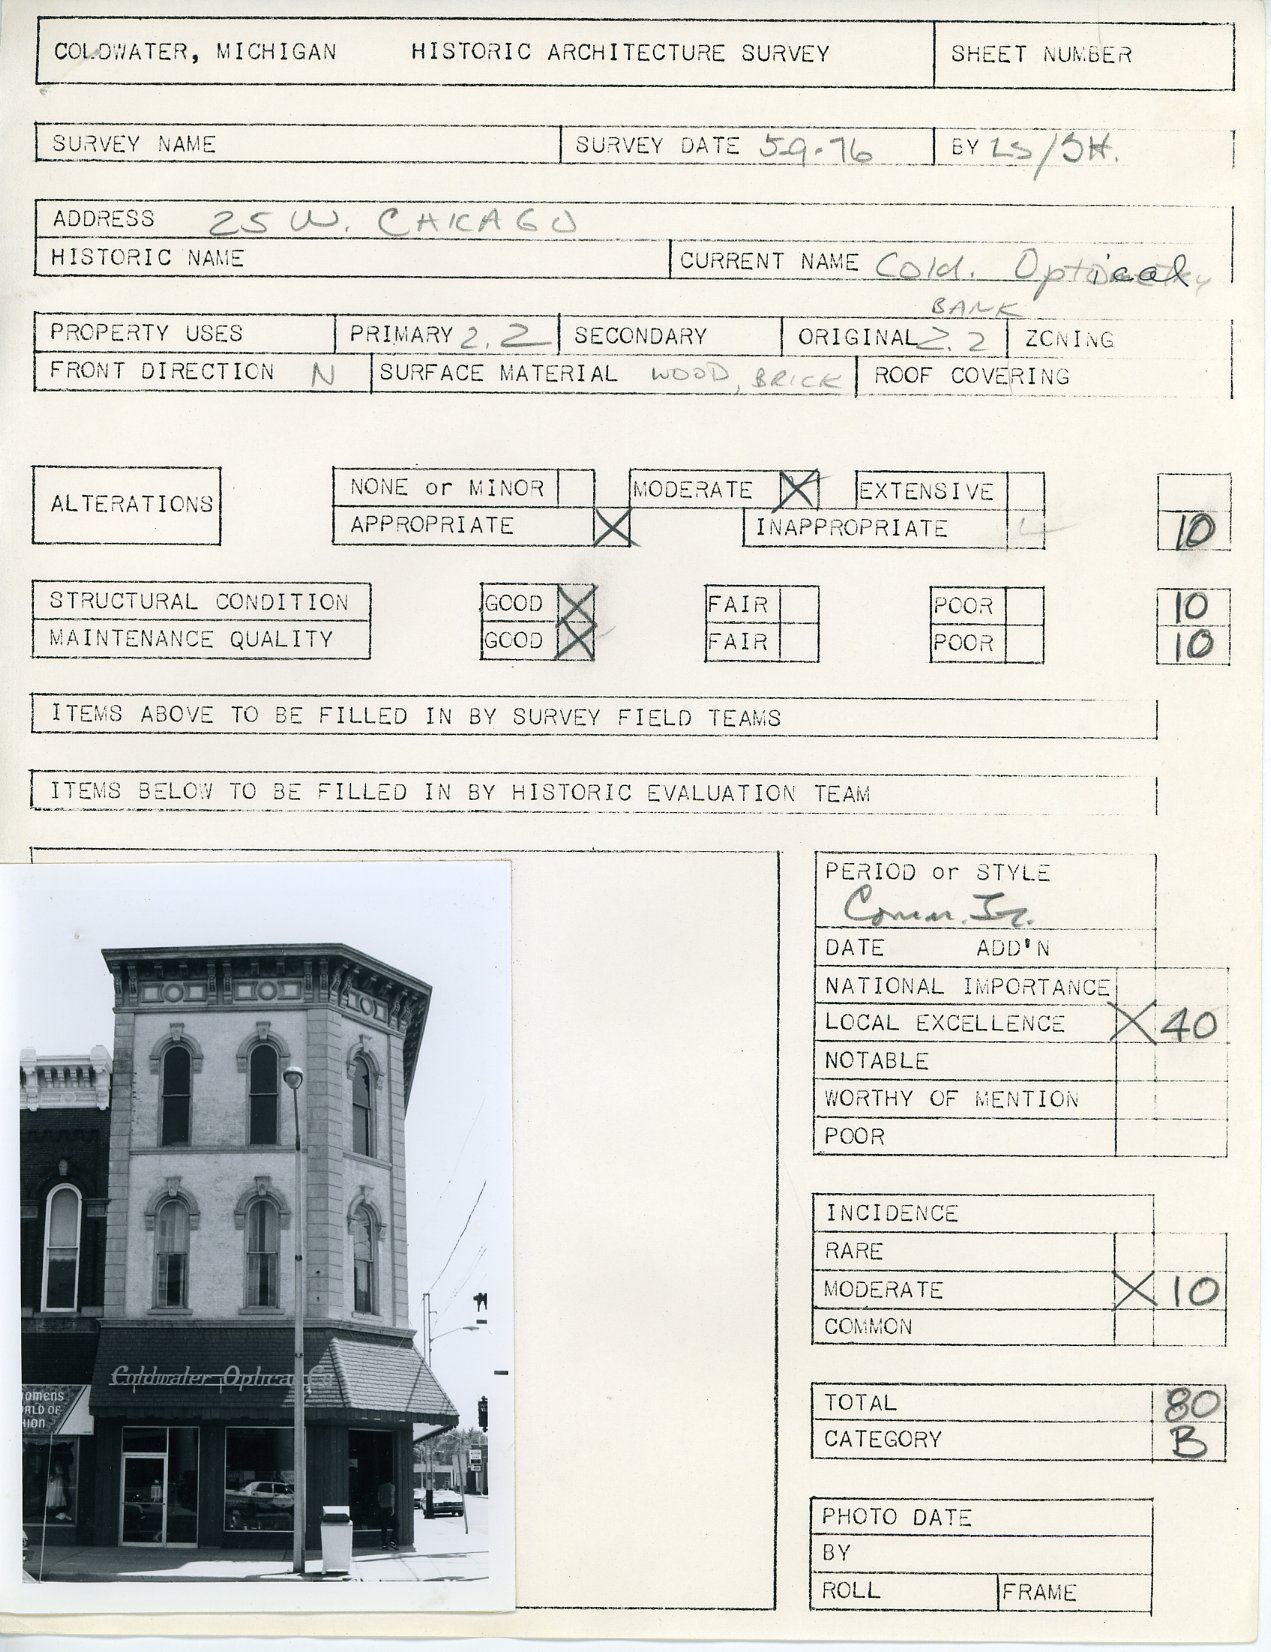 COLDWATER, MICHIGAN HISTORIC ARCHITECTURE SURVEY SHEET NUMBER
SURVEY NAME SURVEY DATE 5-9-76 BY LS/SH.
ADDRESS 25 W. CHICAGO
HISTORIC NAME CURRENT NAME Cold. Optical
BANK
PROPERTY USES PRIMARY 2.2 SECONDARY ORIGINAL 2.2 ZONING
FRONT DIRECTION N SURFACE MATERIAL WOOD, BRICK ROOF COVERING
ALTERATIONS NONE or MINOR MODERATE X EXTENSIVE
APPROPRIATE X INAPPROPRIATE 10
STRUCTURAL CONDITION GOOD X FAIR POOR 10
MAINTENANCE QUALITY GOOD X FAIR POOR 10
ITEMS ABOVE TO BE FILLED IN BY SURVEY FIELD TEAMS
ITEMS BELOW TO BE FILLED IN BY HISTORIC EVALUATION TEAM
PERIOD or STYLE
Comm. It.
DATE ADD'N
NATIONAL IMPORTANCE
LOCAL EXCELLENCE X 40
NOTABLE
WORTHY OF MENTION
POOR
INCIDENCE
RARE
MODERATE X 10
COMMON
TOTAL 80
CATEGORY B
PHOTO DATE
BY
ROLL FRAME
Coldwater Optical Co
WOMENS
WORLD OF